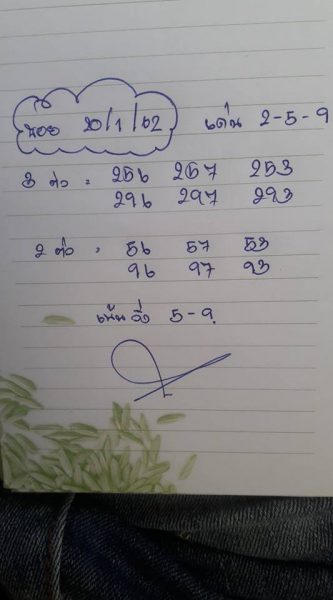 ฮอย 20/1/62 เด่น 2-5-9
3 ตัว = 256 257 253
296 297 293
2 ตัว = 56 57 53
96 97 93
เน้น วิ่ง 5-9